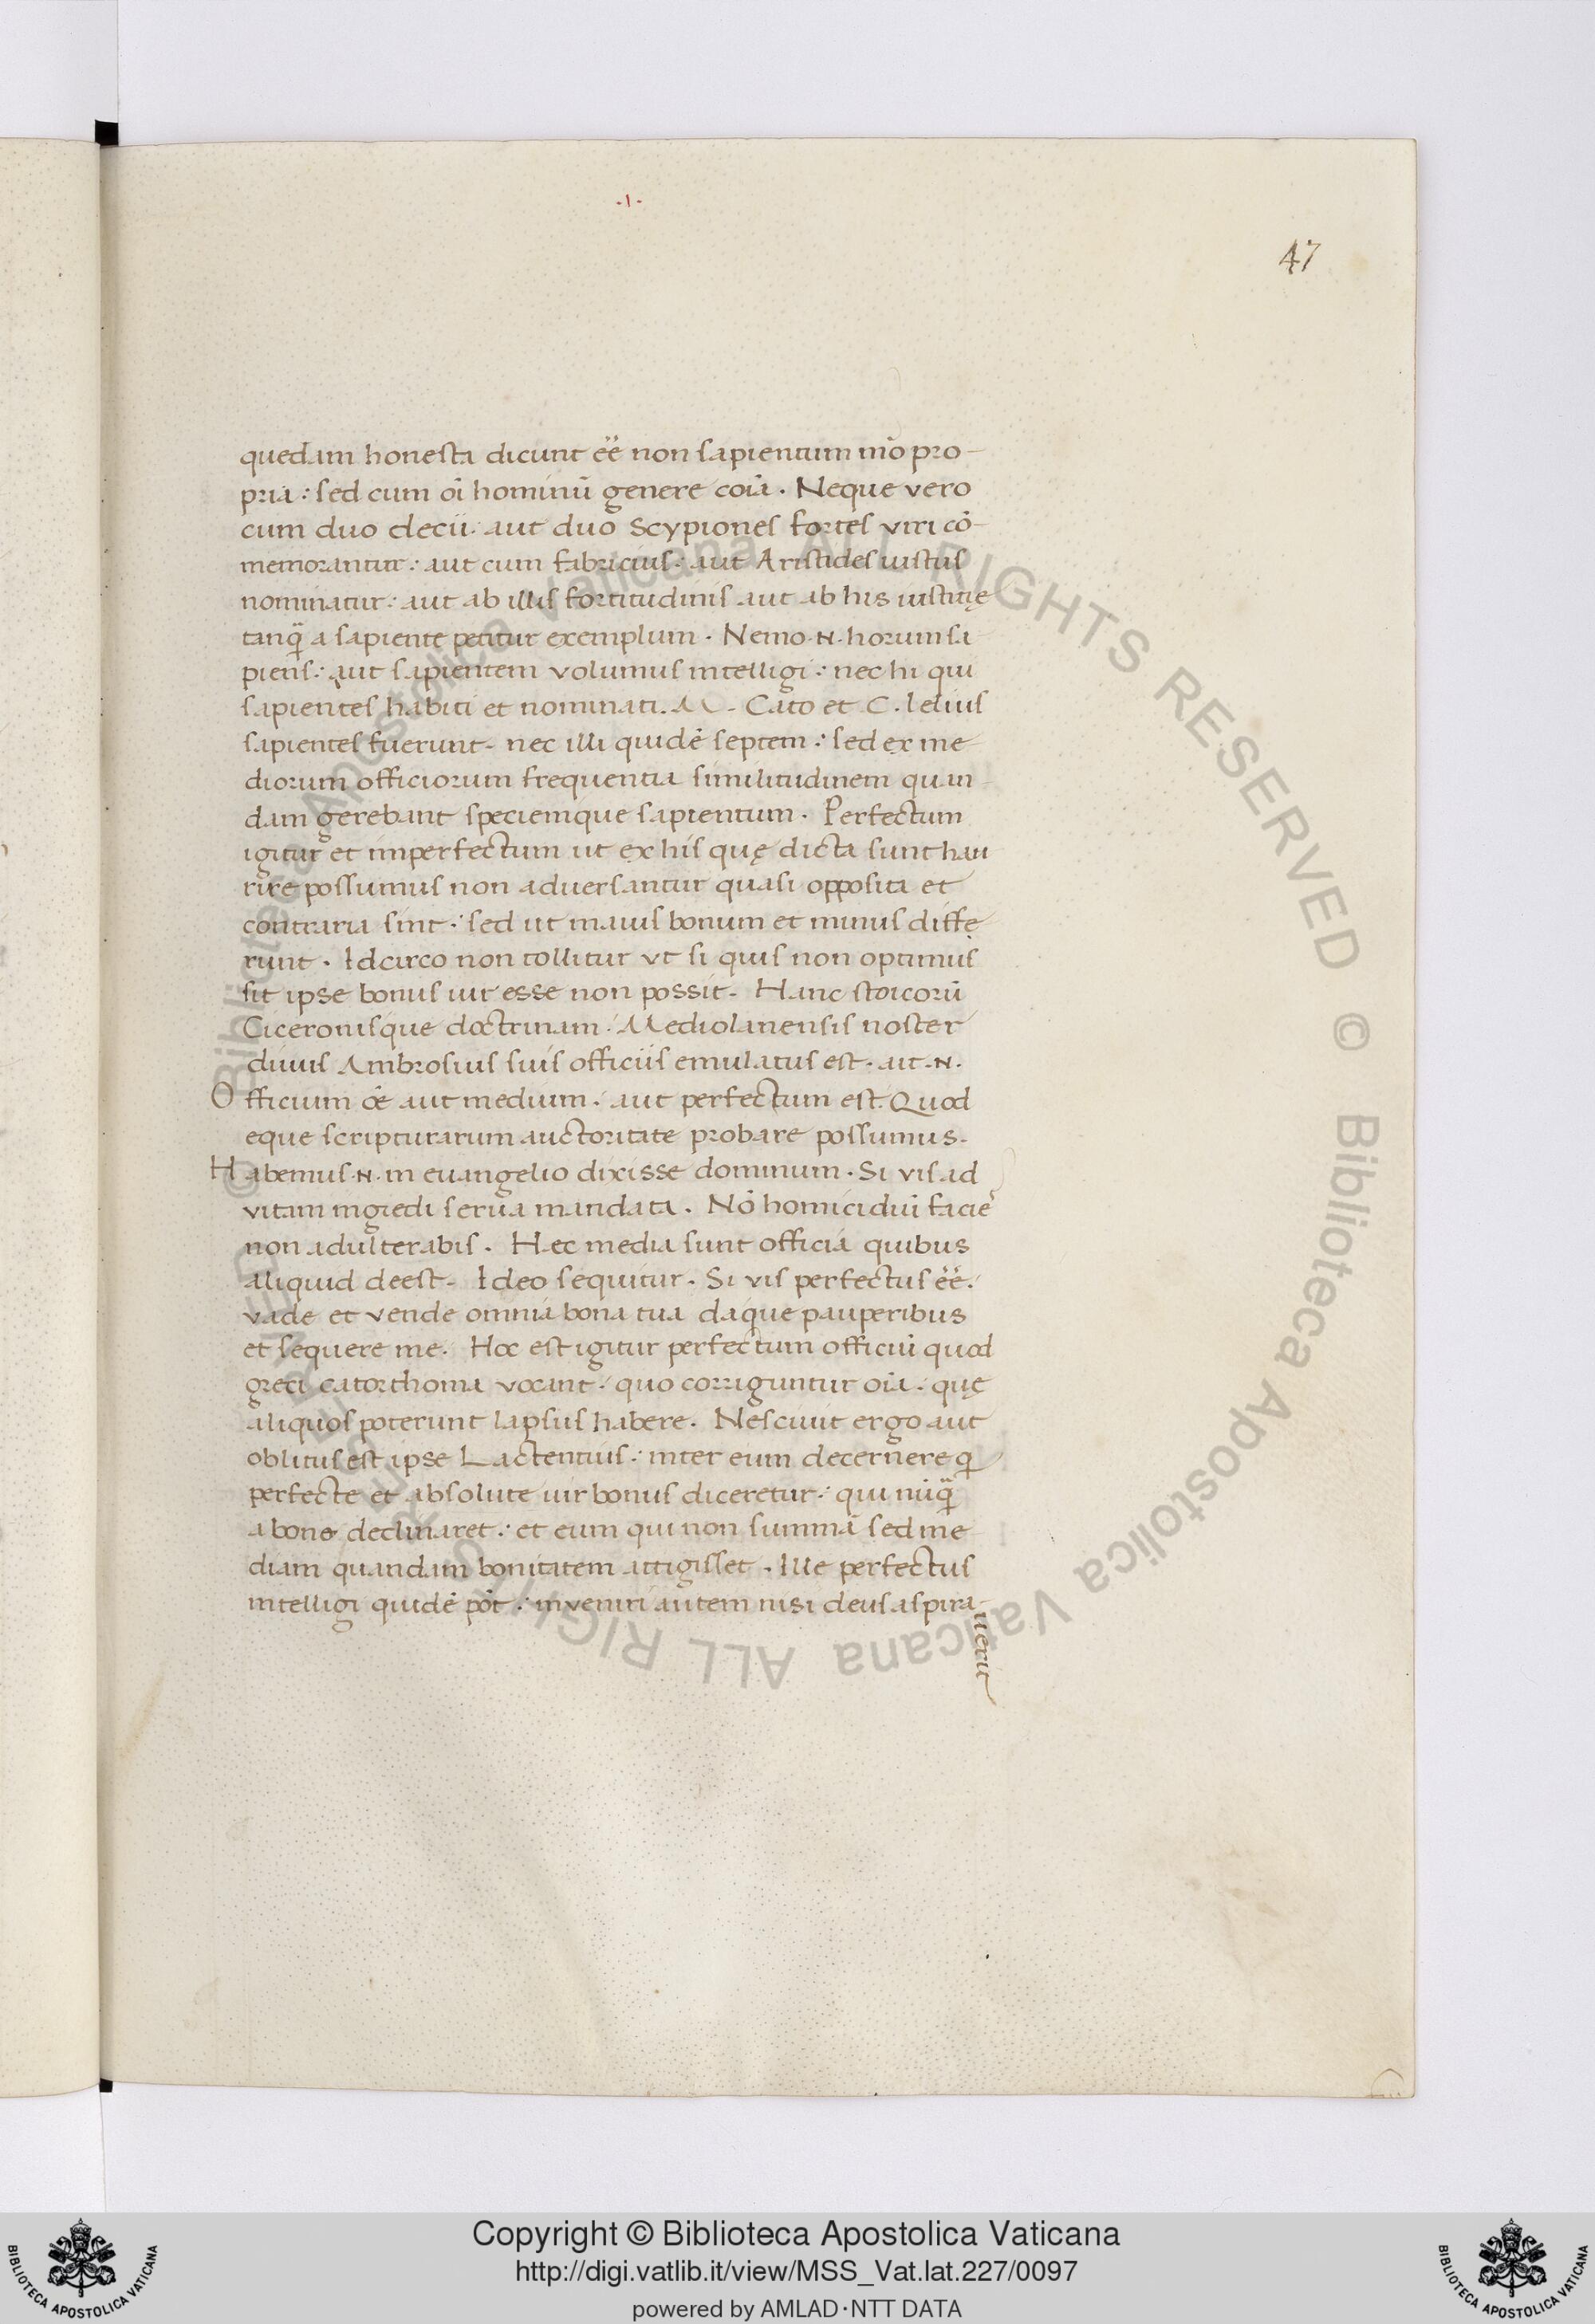 ·1·
47
quedam honesta dicunt ēē non sapientum mō pro-
pria: sed cum oī hominū genere coīa. Neque vero
cum duo decii. aut duo Scypiones fortes viri cō-
memorantur: aut cum fabricius: aut Aristides iustus
nominatur: aut ab illis fortitudinis aut ab his iustitię
tanq̄ a sapiente petitur exemplum. Nemo .N. horum sa
piens: aut sapientem volumus intelligi: nec hi qui
sapientes habiti et nominati. M. Cato et C. lelius
sapientes fuerunt. nec illi quidē septem: sed ex me
diorum officiorum frequentia similitudinem quan-
dam gerebant speciemque sapientum. Perfectum
igitur et imperfectum ut ex his quę dicta sunt hau
rire possumus non aduersantur quasi opposita et
contraria sint: sed ut maius bonum et minus diffe
runt. Idcirco non tollitur vt si quis non optimus
sit ipse bonus uir esse non possit. Hanc stoicorū
Ciceronisque doctrinam. Mediolanensis noster
diuus Ambrosius suis officiis emulatus est. ait .N.
Officium ōe aut medium. aut perfectum est. Quod
eque scripturarum auctoritate probare possumus.
Habemus .N. in euangelio dixisse dominum. Si vis ad
vitam ingredi serua mandata. Nō homicidiū facies
non adulterabis. Hec media sunt officia quibus
aliquid deest. Ideo sequitur. Si vis perfectus ēē.
vade et vende omnia bona tua daque pauperibus
et sequere me. Hoc est igitur perfectum officiū quod
greci catorthoma vocant. quo corriguntur oīa. quę
aliquos poterunt lapsus habere. Nesciuit ergo aut
oblitus est ipse Lactentius: inter eum decernere q̄
perfecte et absolute uir bonus diceretur: qui nūq̄
a bono declinaret: et eum qui non summā sed me
diam quandam bonitatem attigisset. Ille perfectus
intelligi quidē pōt: inveniri autem nisi deus aspira-
uerit
Copyright © Biblioteca Apostolica Vaticana
http://digi.vatlib.it/view/MSS_Vat.lat.227/0097
powered by AMLAD·NTT DATA
BIBLIOTECA APOSTOLICA VATICANA
BIBLIOTECA APOSTOLICA VATICANA
© Biblioteca Apostolica Vaticana ALL RIGHTS RESERVED
© Biblioteca Apostolica Vaticana ALL RIGHTS RESERVED